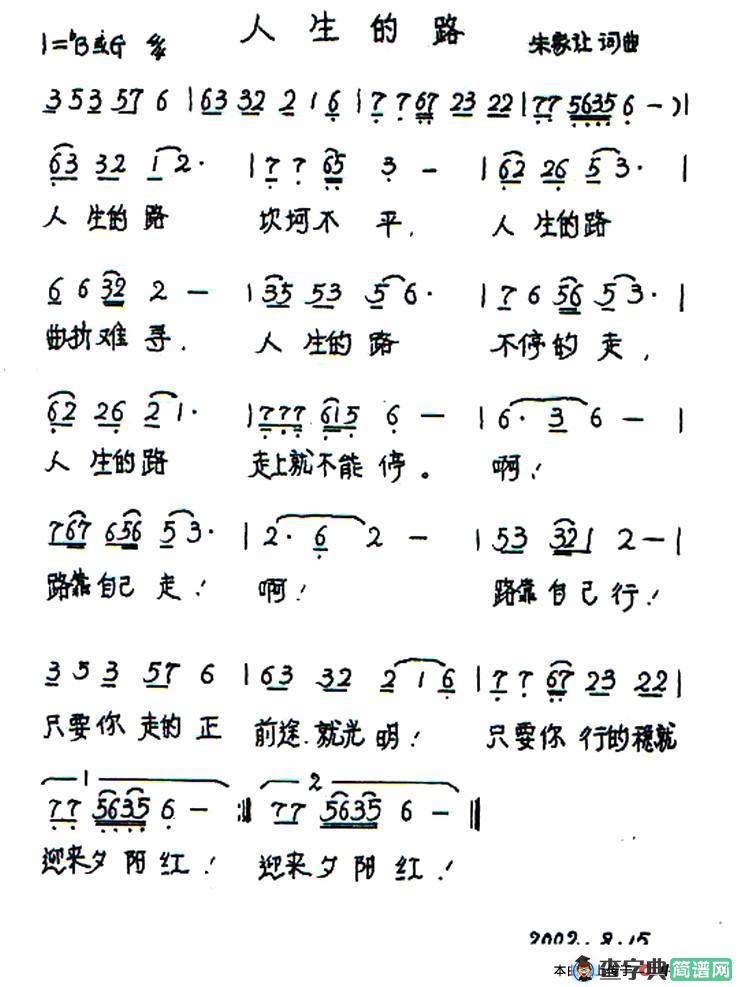 人生的路
1=♭B或G
朱家让 词曲
3 5 3 5 7 6 | 6 3 3 2 2 1 6 | 7 7 6 7 2 3 2 2 | 7 7 5 6 3 5 6 - ) |
6 3 3 2 1 2 · | 7 7 6 5 3 - | 6 2 2 6 5 3 · |
人生的路 坎坷不平, 人生的路
6 6 3 2 2 - | 3 5 5 3 5 6 · | 7 6 5 6 5 3 · |
曲折难寻. 人生的路 不停的走,
6 2 2 6 2 1 · | 7 7 7 6 1 5 6 - | 6 · 3 6 - |
人生的路 走上就不能停。 啊!
7 6 7 6 5 6 5 3 · | 2 · 6 2 - | 5 3 3 2 1 2 - |
路靠自己走! 啊! 路靠自己行!
3 5 3 5 7 6 | 6 3 3 2 2 1 6 | 7 7 6 7 2 3 2 2 |
只要你走的正 前途.就光明! 只要你行的稳就
1 2
7 7 5 6 3 5 6 - :‖ 7 7 5 6 3 5 6 - ‖
迎来夕阳红! 迎来夕阳红!
2002.8.15
查字典 简谱网